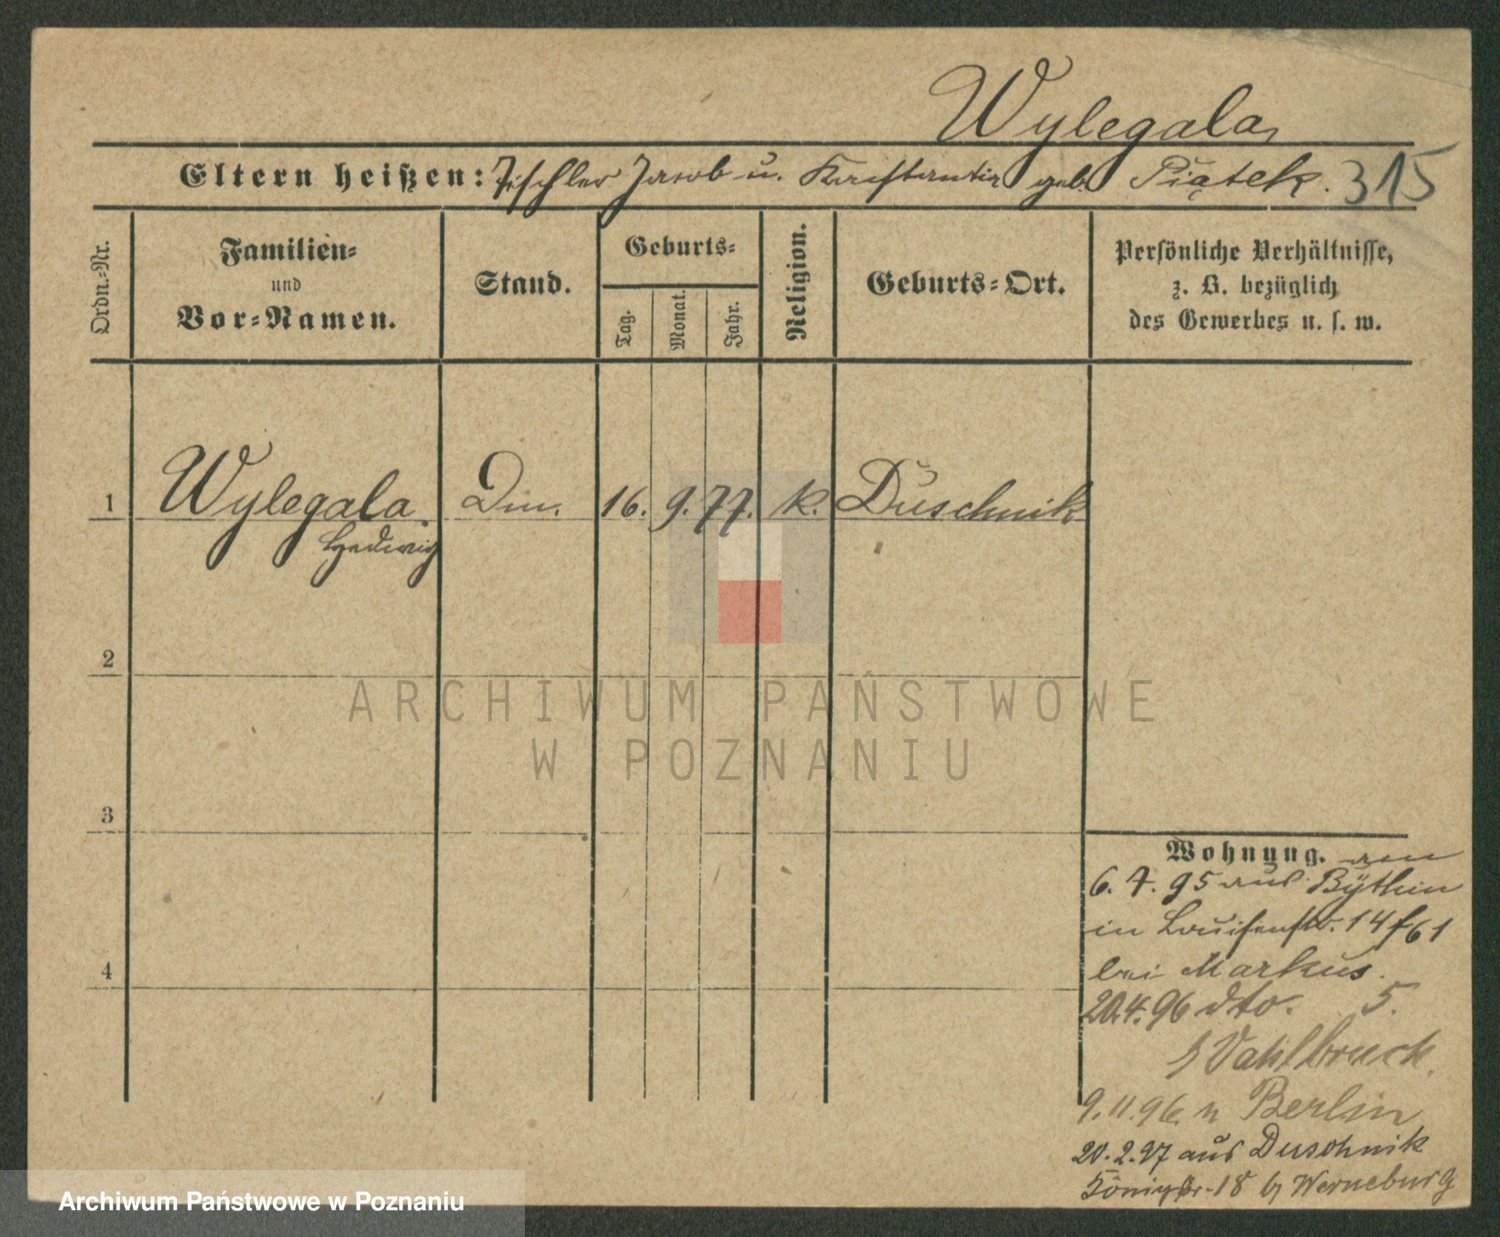 Wylegala,
Eltern heißen: Tischler Jacob u. Konstantia geb. Piątek. 315
Ordn.-Nr.
Familien-
und
Vor-Namen.
Stand.
Geburts-
Tag.
Monat.
Jahr.
Religion.
Geburts-Ort.
Persönliche Verhältnisse,
z. B. bezüglich
des Gewerbes u. s. w.
1 Wylegala. Din. 16. 9. 77. k. Duschnik
Hedwig
2
ARCHIWUM PAŃSTWOWE
W POZNANIU
3
Wohnung. am
6. 7. 95 aus Bythin
in Louisenstr. 14
bei Markus.
20.4.96 dto. 5.
b Vahlbruch.
9.11.96 n Berlin
20.2.97 aus Duschnik
Königstr. 18 b/ Werneburg
4
Archiwum Państwowe w Poznaniu